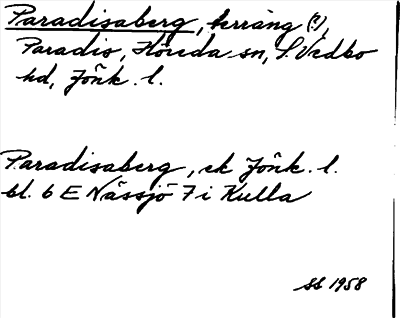 Paradisaberg, terräng (?),
Paradis, Höreda sn, S. Vedbo
hd, Jönk. l.
Paradisaberg, ek Jönk. l.
bl. 6 E Nässjö 7 i Kulla
SS 1958